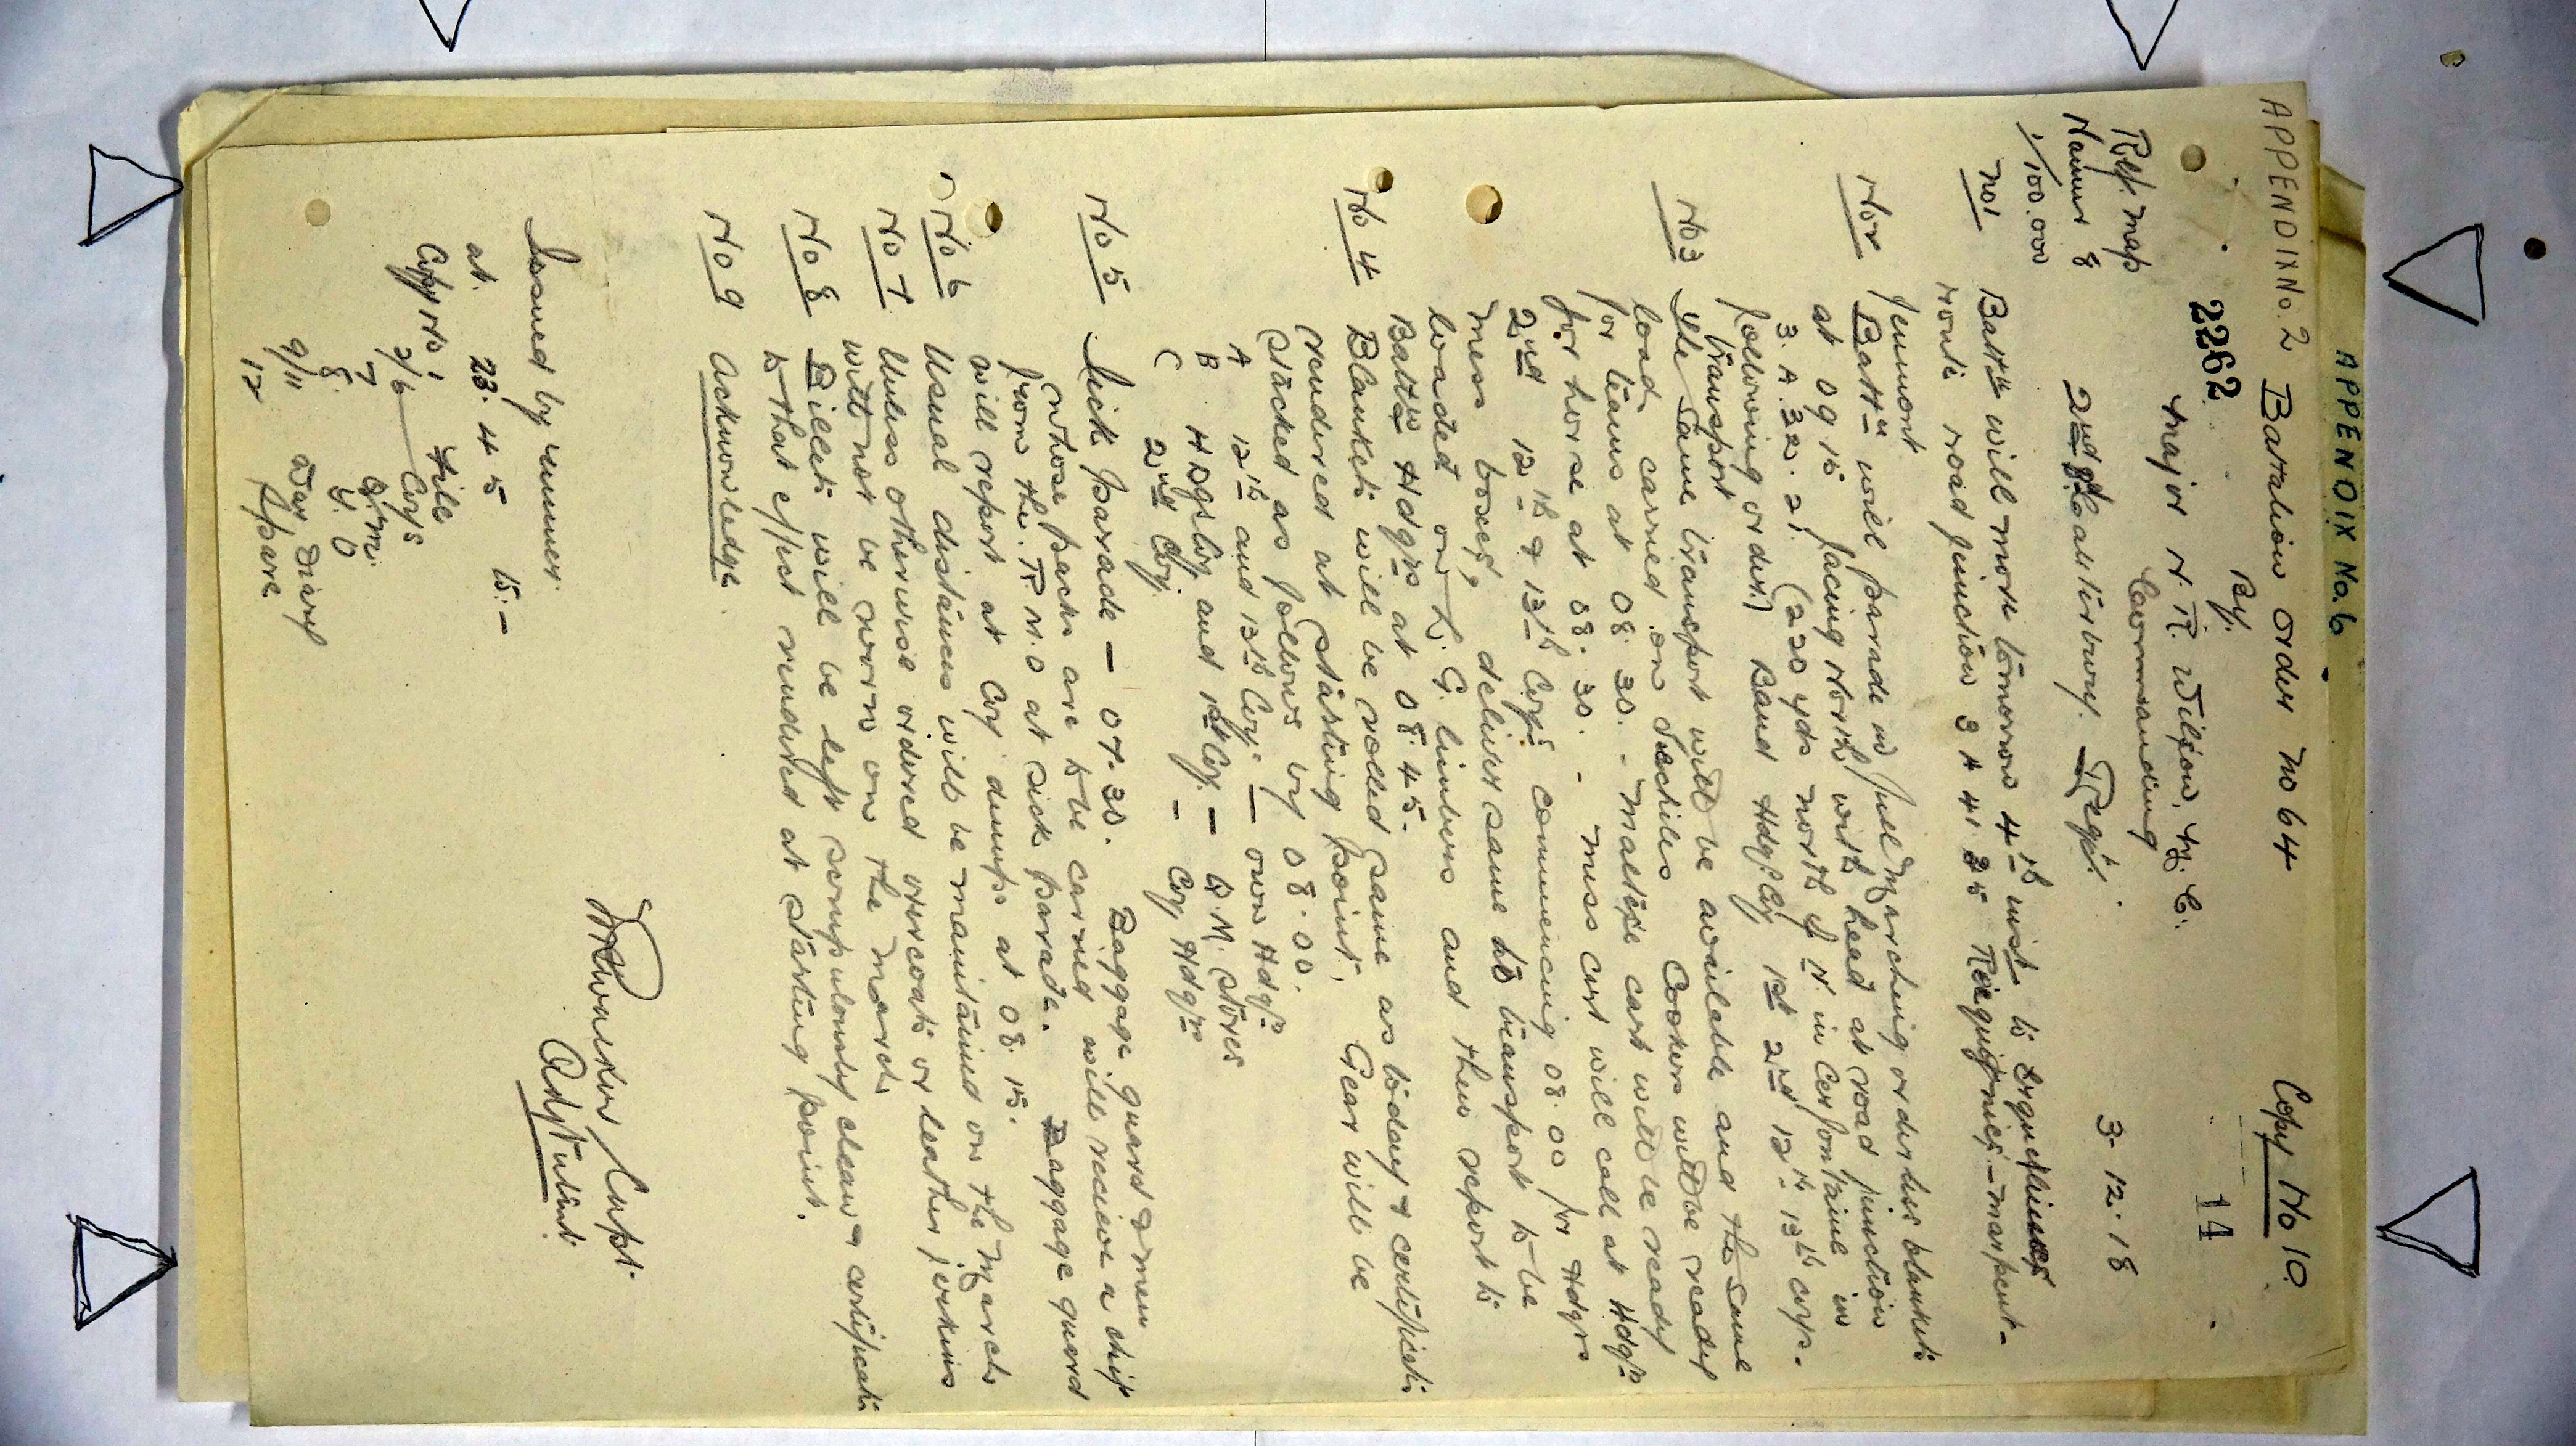 APPENDIX No. 6
APPENDIX No. 2 Battalion order no 64 Copy No 10.
By.
2262 Major N. R. Wilson, M. C. 14
Commanding
2nd Bn Canterbury Regt. 3. 12. 18
Ref. map
Namur 8
1/100.000
No 1 Battn will move tomorrow 4th inst to Erquelinnes
route road junction 3 H 41 35 Requignies - Marpent -
Jeumont
No 2 Battn will parade in full Marching order less blankets
at 09 15 facing North with head at road junction
3. A. 32. 21. (220 yds north of N. in Cerfontaine in
following order.) Band Hdqr Coy 1st 2nd 12th 13th coys.
Transport
No 3 The same transport will be available and the same
load carried on vehicles Cookers will be ready
for teams at 08. 30. - Maltese cart will be ready
for horse at 08. 30. - Mess cart will call at Hdqrs
2nd 12th & 13th Coys commencing 08. 00 for Hdqrs
mess boxes, deliver same to transport to be
loaded on L. G. limbers and then report to
Battn Hdqrs at 08. 45.
No 4 Blankets will be rolled same as today & certificate
rendered at starting point. Gear will be
stacked as follows by 08. 00.
A 12th and 13th Coy. — own Hdqrs
B HDqrs Coy and 1st Coy. — Q. M. Stores
C 2nd Coy. — Coy Hdqrs
No 5 Sick parade — 07. 30. Baggage guard & men
whose packs are to be carried will receive a chit
from the R. M. O at sick parade. Baggage guard
will report at Coy dumps at 08. 15.
No 6 Usual distances will be maintained on the March
No 7 Unless otherwise ordered overcoats or leather jerkins
will not be worn on the March
No 8 Billets will be left scrupulously clean & certificate
to that effect rendered at starting point.
No 9 Acknowledge.
Capt.
Adjutant.
Issued by runner.
at. 23. 45 15. —
Copy No 1 File
2/6 — Coys
7 Q. M.
8. T. O
9/11 War Diary
12 Spare